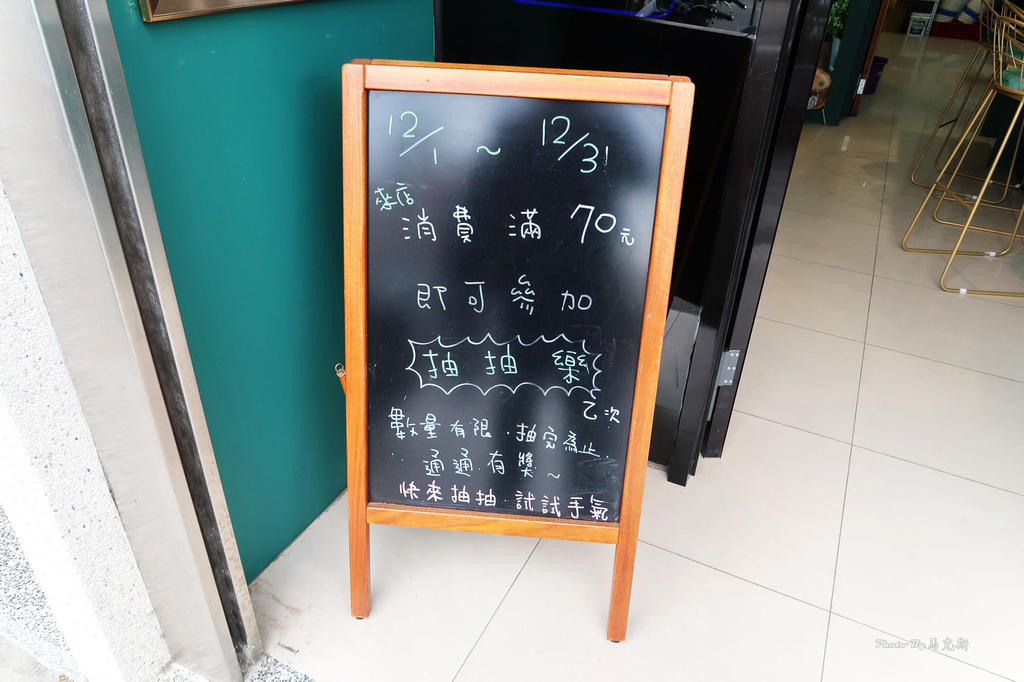 12/1 ~ 12/31
來店
消費 滿 70元
即可參加
抽抽樂
乙次
數量有限．抽完為止．
通通有獎~
快來抽抽．試試手氣
Photo By 馬克斯